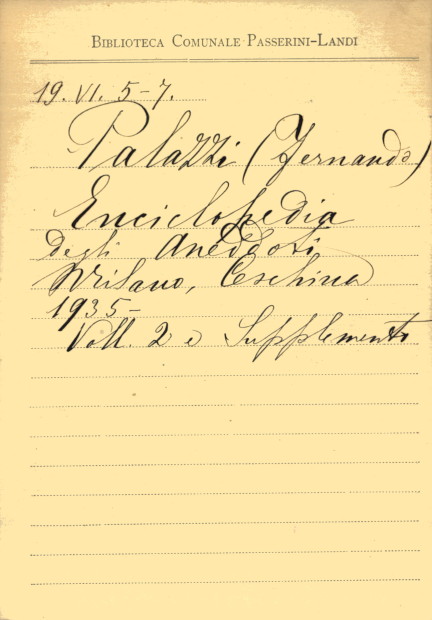 BIBLIOTECA COMUNALE PASSERINI-LANDI
19. VI. 5-7.
Palazzi (Fernando)
Enciclopedia
degli Aneddoti
Milano, Ceschina
1935-
Voll. 2 e Supplemento